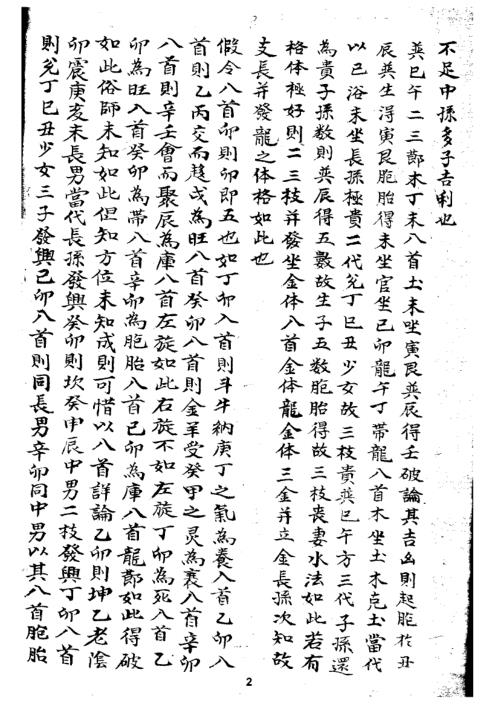 不足中孫多子吉利也
巽巳午二三節木丁未八首土未坐寅艮巽辰得壬破論其吉凶則起胞於丑
辰巽生得寅艮胞胎得未坐官坐己卯龍午丁帶龍八首木坐土木克土當代
以己浴未坐長孫極貴二代兌丁巳丑少女故三枝貴巽巳午方三代子孫還
為貴子孫数則巽辰得五數故生子五数胞胎得故三枝喪妻水法如此若有
格体極好則二三枝并發坐金体八首金体龍金体三金并立金長孫次知故
支長并發龍之体格如此也
假令八首卯則卯即五也如丁卯入首則斗牛納庚丁之氣為養入首乙卯八
首則乙丙交而趍戌為旺八首癸卯八首則金羊受癸甲之灵為衰入首辛卯
八首則辛壬會而聚辰為庫八首左旋如此右旋不如左旋丁卯為死八首乙
卯為旺入首癸卯為帶八首辛卯為胞胎八首己卯為庫八首龍節如此得破
如此俗師未知如此但知方位未知成則可惜以八首詳論乙卯則坤乙老陰
卯震庚亥未長男當代長孫發興癸卯則坎癸申辰中男二枝發興丁卯八首
則兌丁巳丑少女三子發興己卯八首則同長男辛卯同中男以其八首胞胎
2